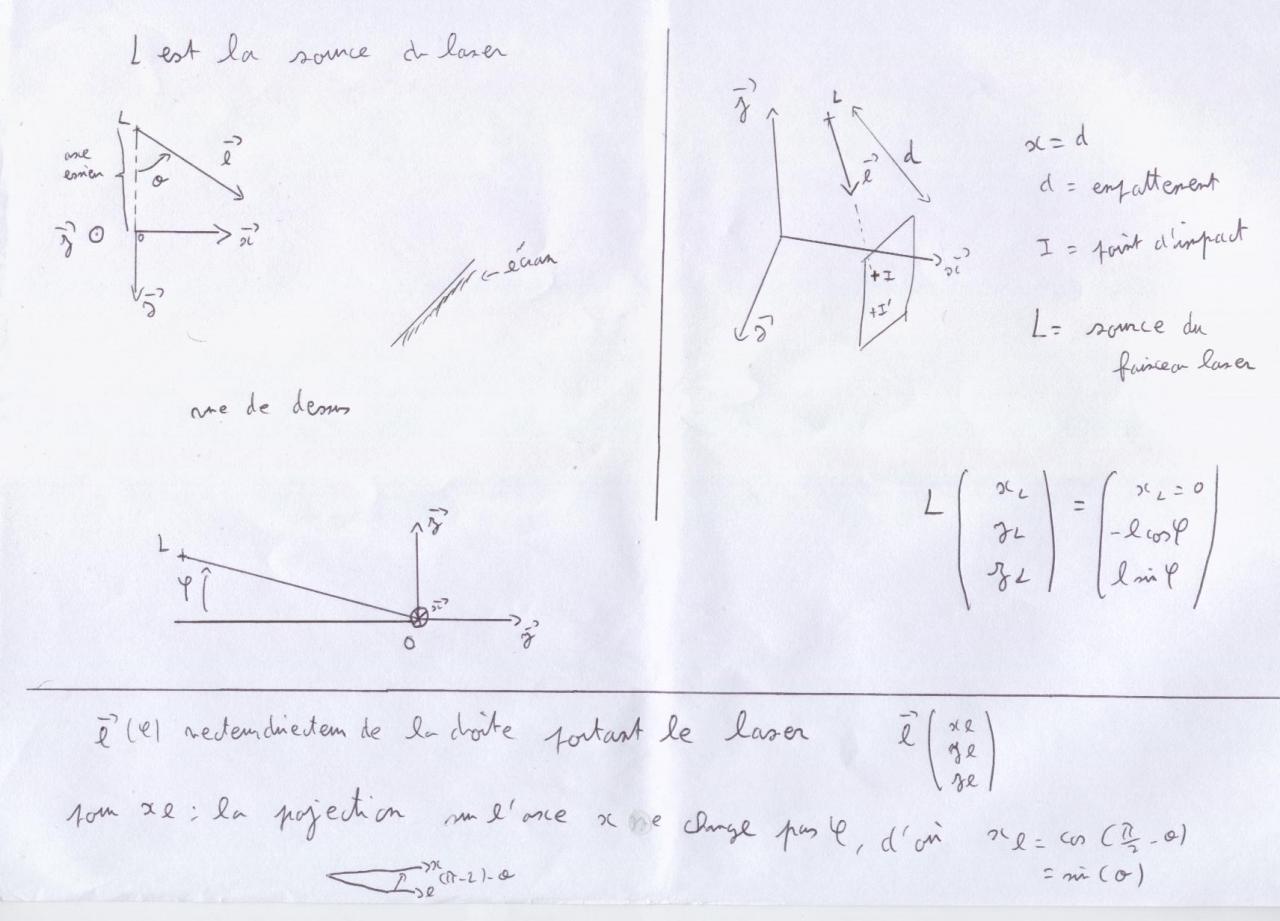 L est la source du laser
L
axe
essieu
θ
l⃗
z⃗
o
x⃗
y⃗
écran
vue de dessus
z⃗
L
l⃗
d
x⃗
+I
+I'
y⃗
x = d
d = empattement
I = point d'impact
L = source du
faisceau laser
L
φ
z⃗
x⃗
O
y⃗
L ( x_L y_L z_L ) = ( x_L = 0 -l cos φ l sin φ )
l⃗ (φ) vecteur directeur de la droite portant le laser l⃗ ( xl yl zl )
pour xl : la projection sur l'axe x ne change pas φ, d'où xl = cos (π/2 - θ)
= sin (θ)
x
l
(π-2)-θ